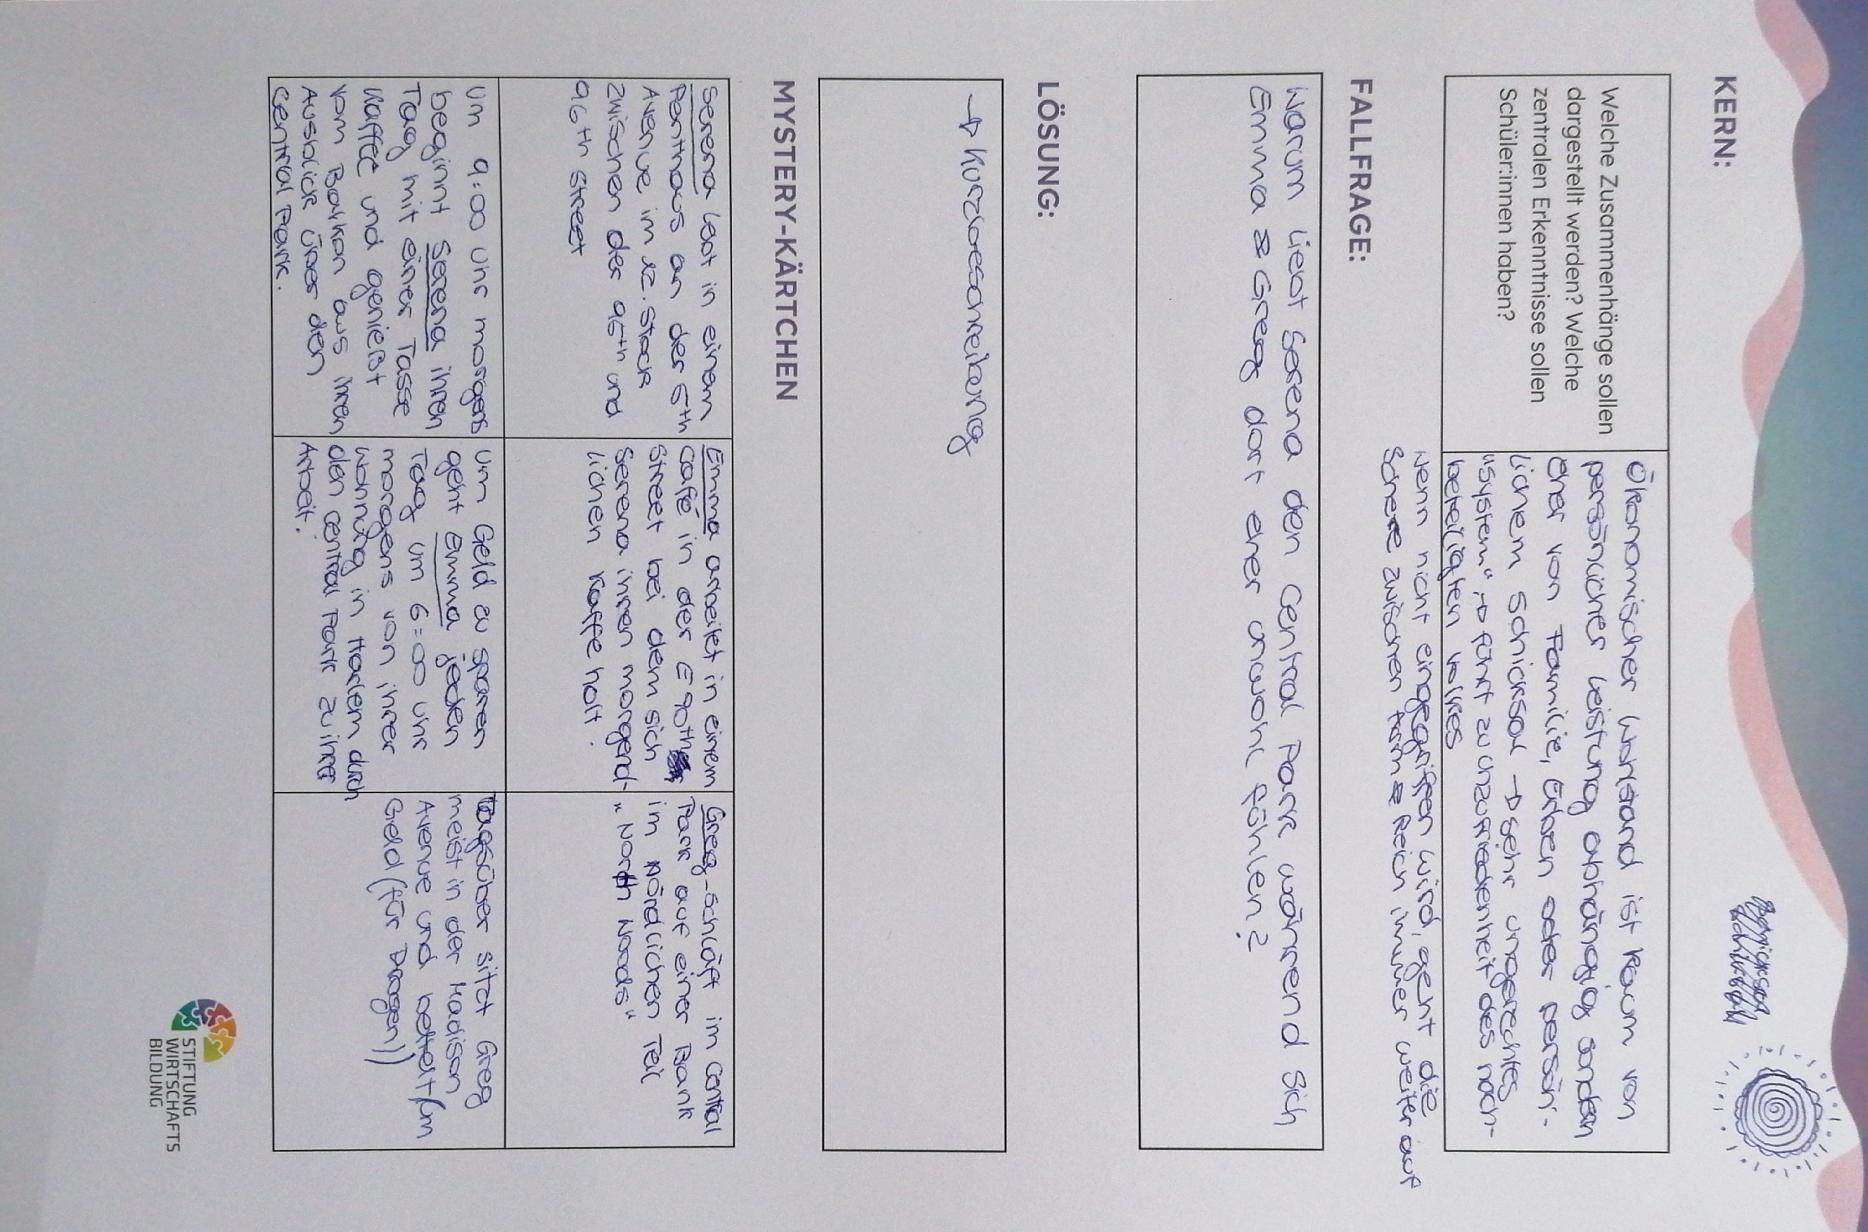 KERN:
Welche Zusammenhänge sollen
dargestellt werden? Welche
zentralen Erkenntnisse sollen
Schüler:innen haben?
Ökonomischer Wohlstand ist kaum von
persönlicher Leistung abhängig sondern
eher von Familie, Erben oder persön-
lichem Schicksal → sehr ungerechtes
"System" → führt zu Unzufriedenheit des noch-
beteiligten Volkes
wenn nicht eingegriffen wird, geht die
Schere zwischen Arm & Reich immer weiter auf
FALLFRAGE:
Warum liebt Serena den Central Park während sich
Emma & Greg dort eher unwohl fühlen?
LÖSUNG:
→ Kurzbeschreibung
MYSTERY-KÄRTCHEN
Serena lebt in einem
Penthaus an der 5th
Avenue im 12. Stock
zwischen der 95th und
96th street
Emma arbeitet in einem
Café in der E 90th
Street bei dem sich
Serena ihren morgend-
lichen Kaffe holt.
Greg schläft im Central
Park auf einer Bank
im nördlichen Teil
"North Woods"
Um 9:00 Uhr morgens
beginnt Serena ihren
Tag mit einer Tasse
Kaffee und genießt
vom Balkon aus ihren
Ausblick über den
Central Park.
Um Geld zu sparen
geht Emma jeden
Tag um 6:00 Uhr
morgens von ihrer
Wohnung in Harlem durch
den Central Park zu ihrer
Arbeit.
Tagsüber sitzt Greg
meist in der Madison
Avenue und bettelt um
Geld (für Drogen)
STIFTUNG
WIRTSCHAFTS
BILDUNG